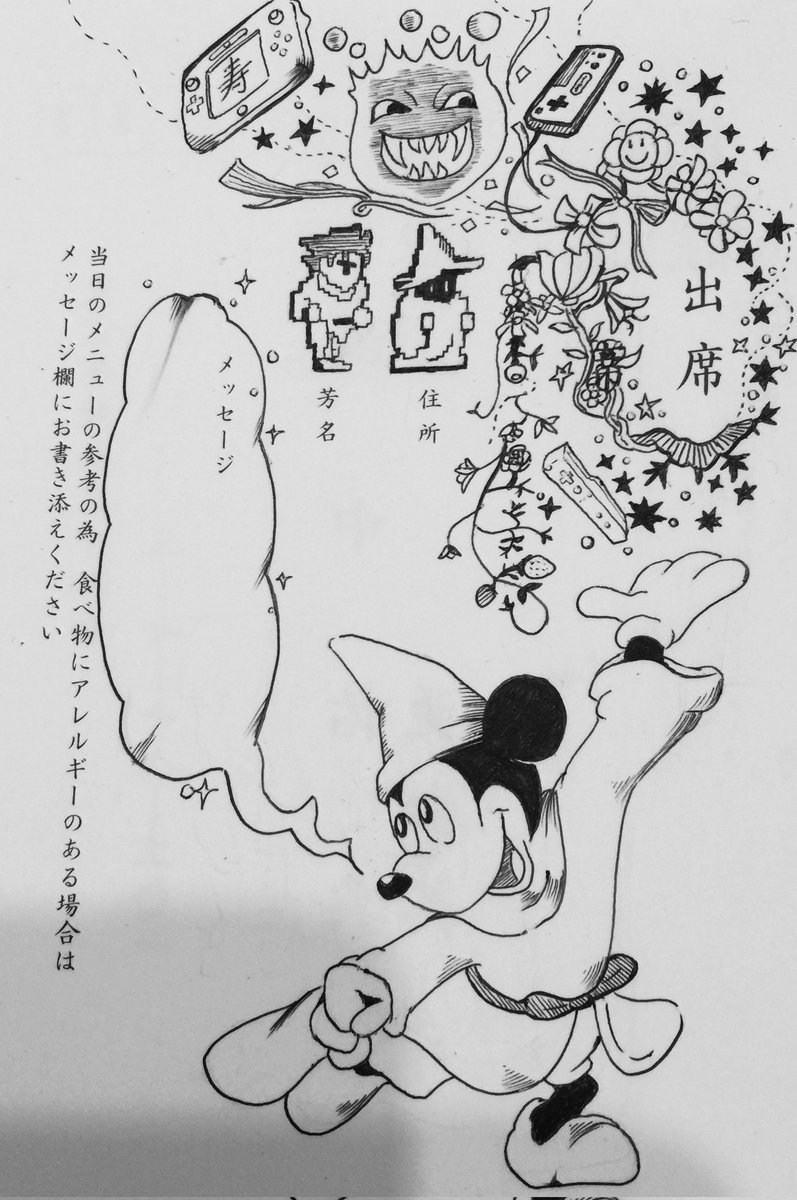 寿
出席
住所
芳名
メッセージ
当日のメニューの参考の為　食べ物にアレルギーのある場合は
メッセージ欄にお書き添えください